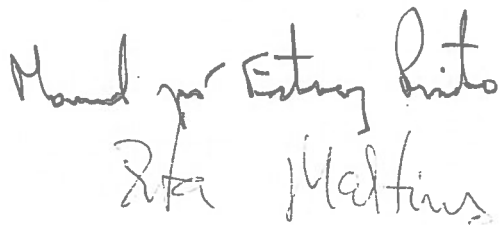 Manuel José Esteves Pinto
Rita Martins